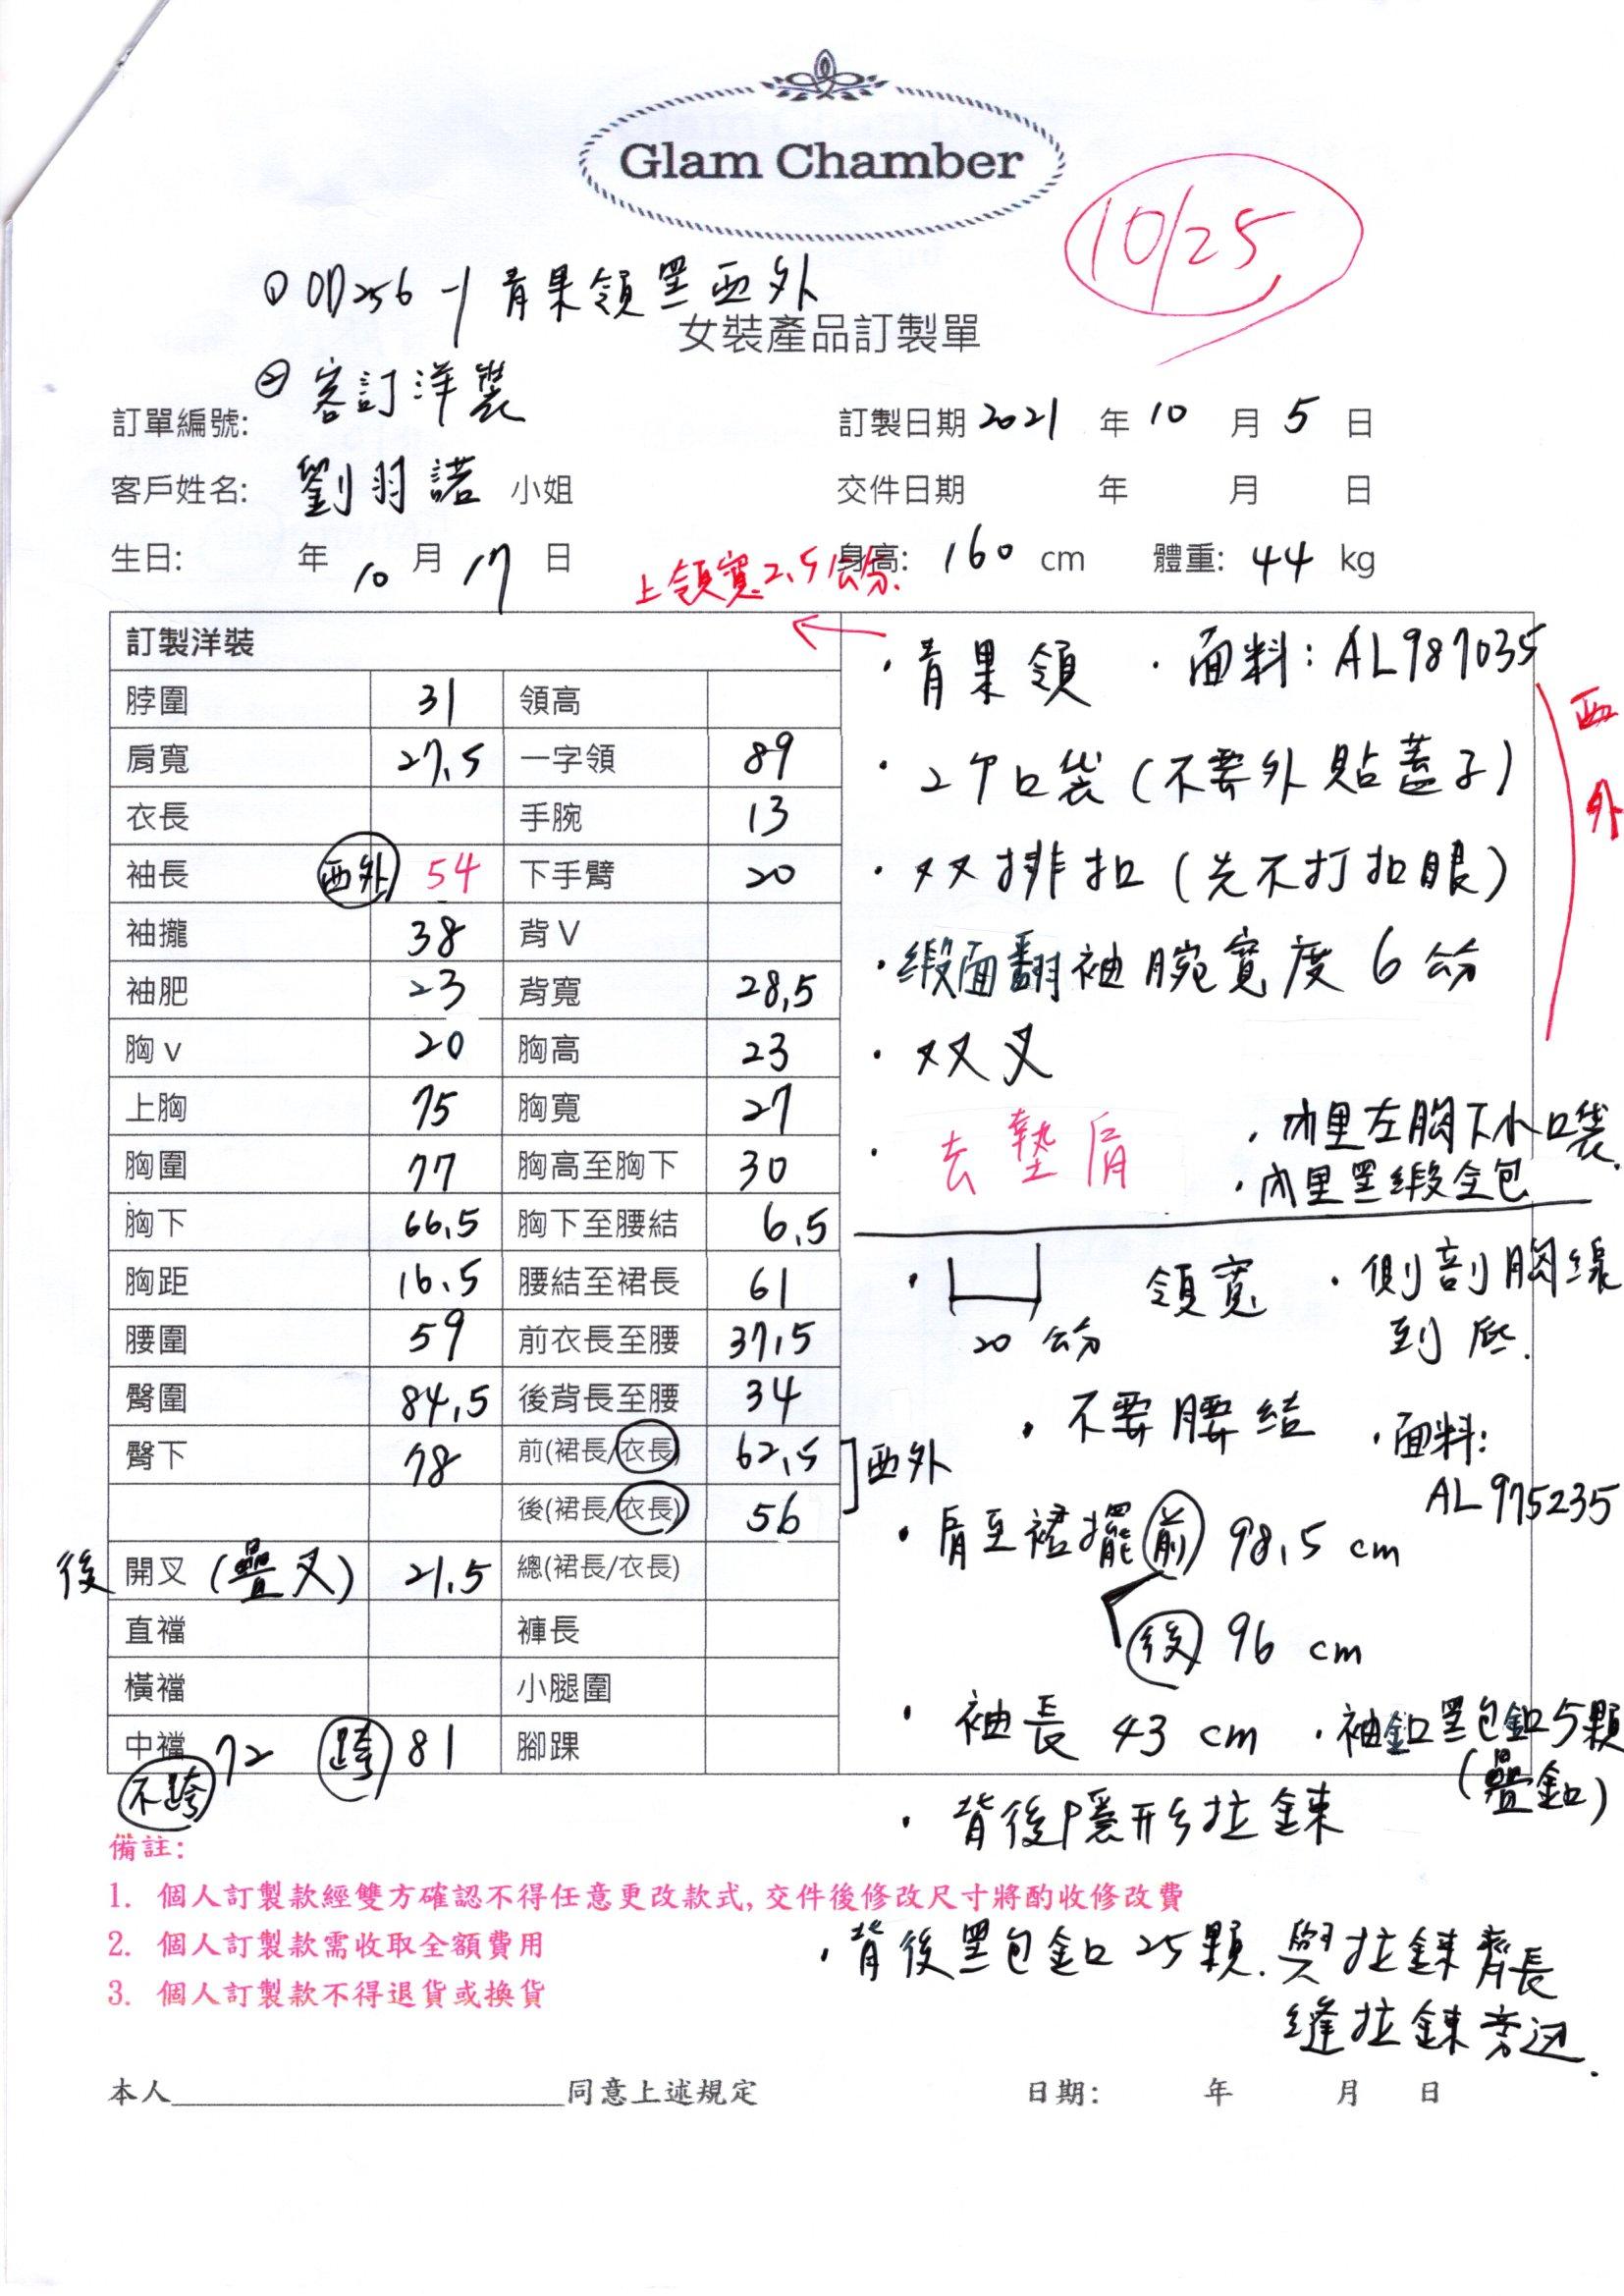 Glam Chamber
10/25
① OD256-1 青果領黑西外
女裝產品訂製單
② 客訂洋裝
訂單編號: 訂製日期 2021 年 10 月 5 日
客戶姓名: 劉羽諾 小姐 交件日期 年 月 日
生日: 年 10 月 17 日 身高: 160 cm 體重: 44 kg
上領寬 2.5公分.
訂製洋裝
脖圍 31 領高
肩寬 27.5 一字領 89
衣長 手腕 13
袖長 西外 54 下手臂 20
袖攏 38 背 V
袖肥 23 背寬 28.5
胸 v 20 胸高 23
上胸 75 胸寬 27
胸圍 77 胸高至胸下 30
胸下 66.5 胸下至腰結 6.5
胸距 16.5 腰結至裙長 61
腰圍 59 前衣長至腰 37.5
臀圍 84.5 後背長至腰 34
臀下 78 前(裙長/衣長) 62.5
後(裙長/衣長) 56
西外
後 開叉 (疊叉) 21.5 總(裙長/衣長)
直襠 褲長
橫襠 小腿圍
中襠 72 跨 81 腳踝
不跨
· 青果領 · 面料: AL987035
西外
· 2个口袋 (不要外貼蓋子)
· 双排扣 (先不打扣眼)
· 緞面翻袖腕寬度 6 公分
· 双叉
· 去墊肩
· 內里左胸下小口袋.
· 內里黑緞全包
· 20 公分 領寬
· 側剖胸線到底.
· 不要腰結
· 面料: AL975235
· 肩至裙擺 前 98.5 cm
後 96 cm
· 袖長 43 cm · 袖釦黑包釦5顆
(疊釦)
· 背後隱形拉鍊
備註:
1. 個人訂製款經雙方確認不得任意更改款式, 交件後修改尺寸將酌收修改費
2. 個人訂製款需收取全額費用
3. 個人訂製款不得退貨或換貨
· 背後黑包釦 25顆. 與拉鍊齊長
縫拉鍊旁边.
本人 同意上述規定 日期: 年 月 日